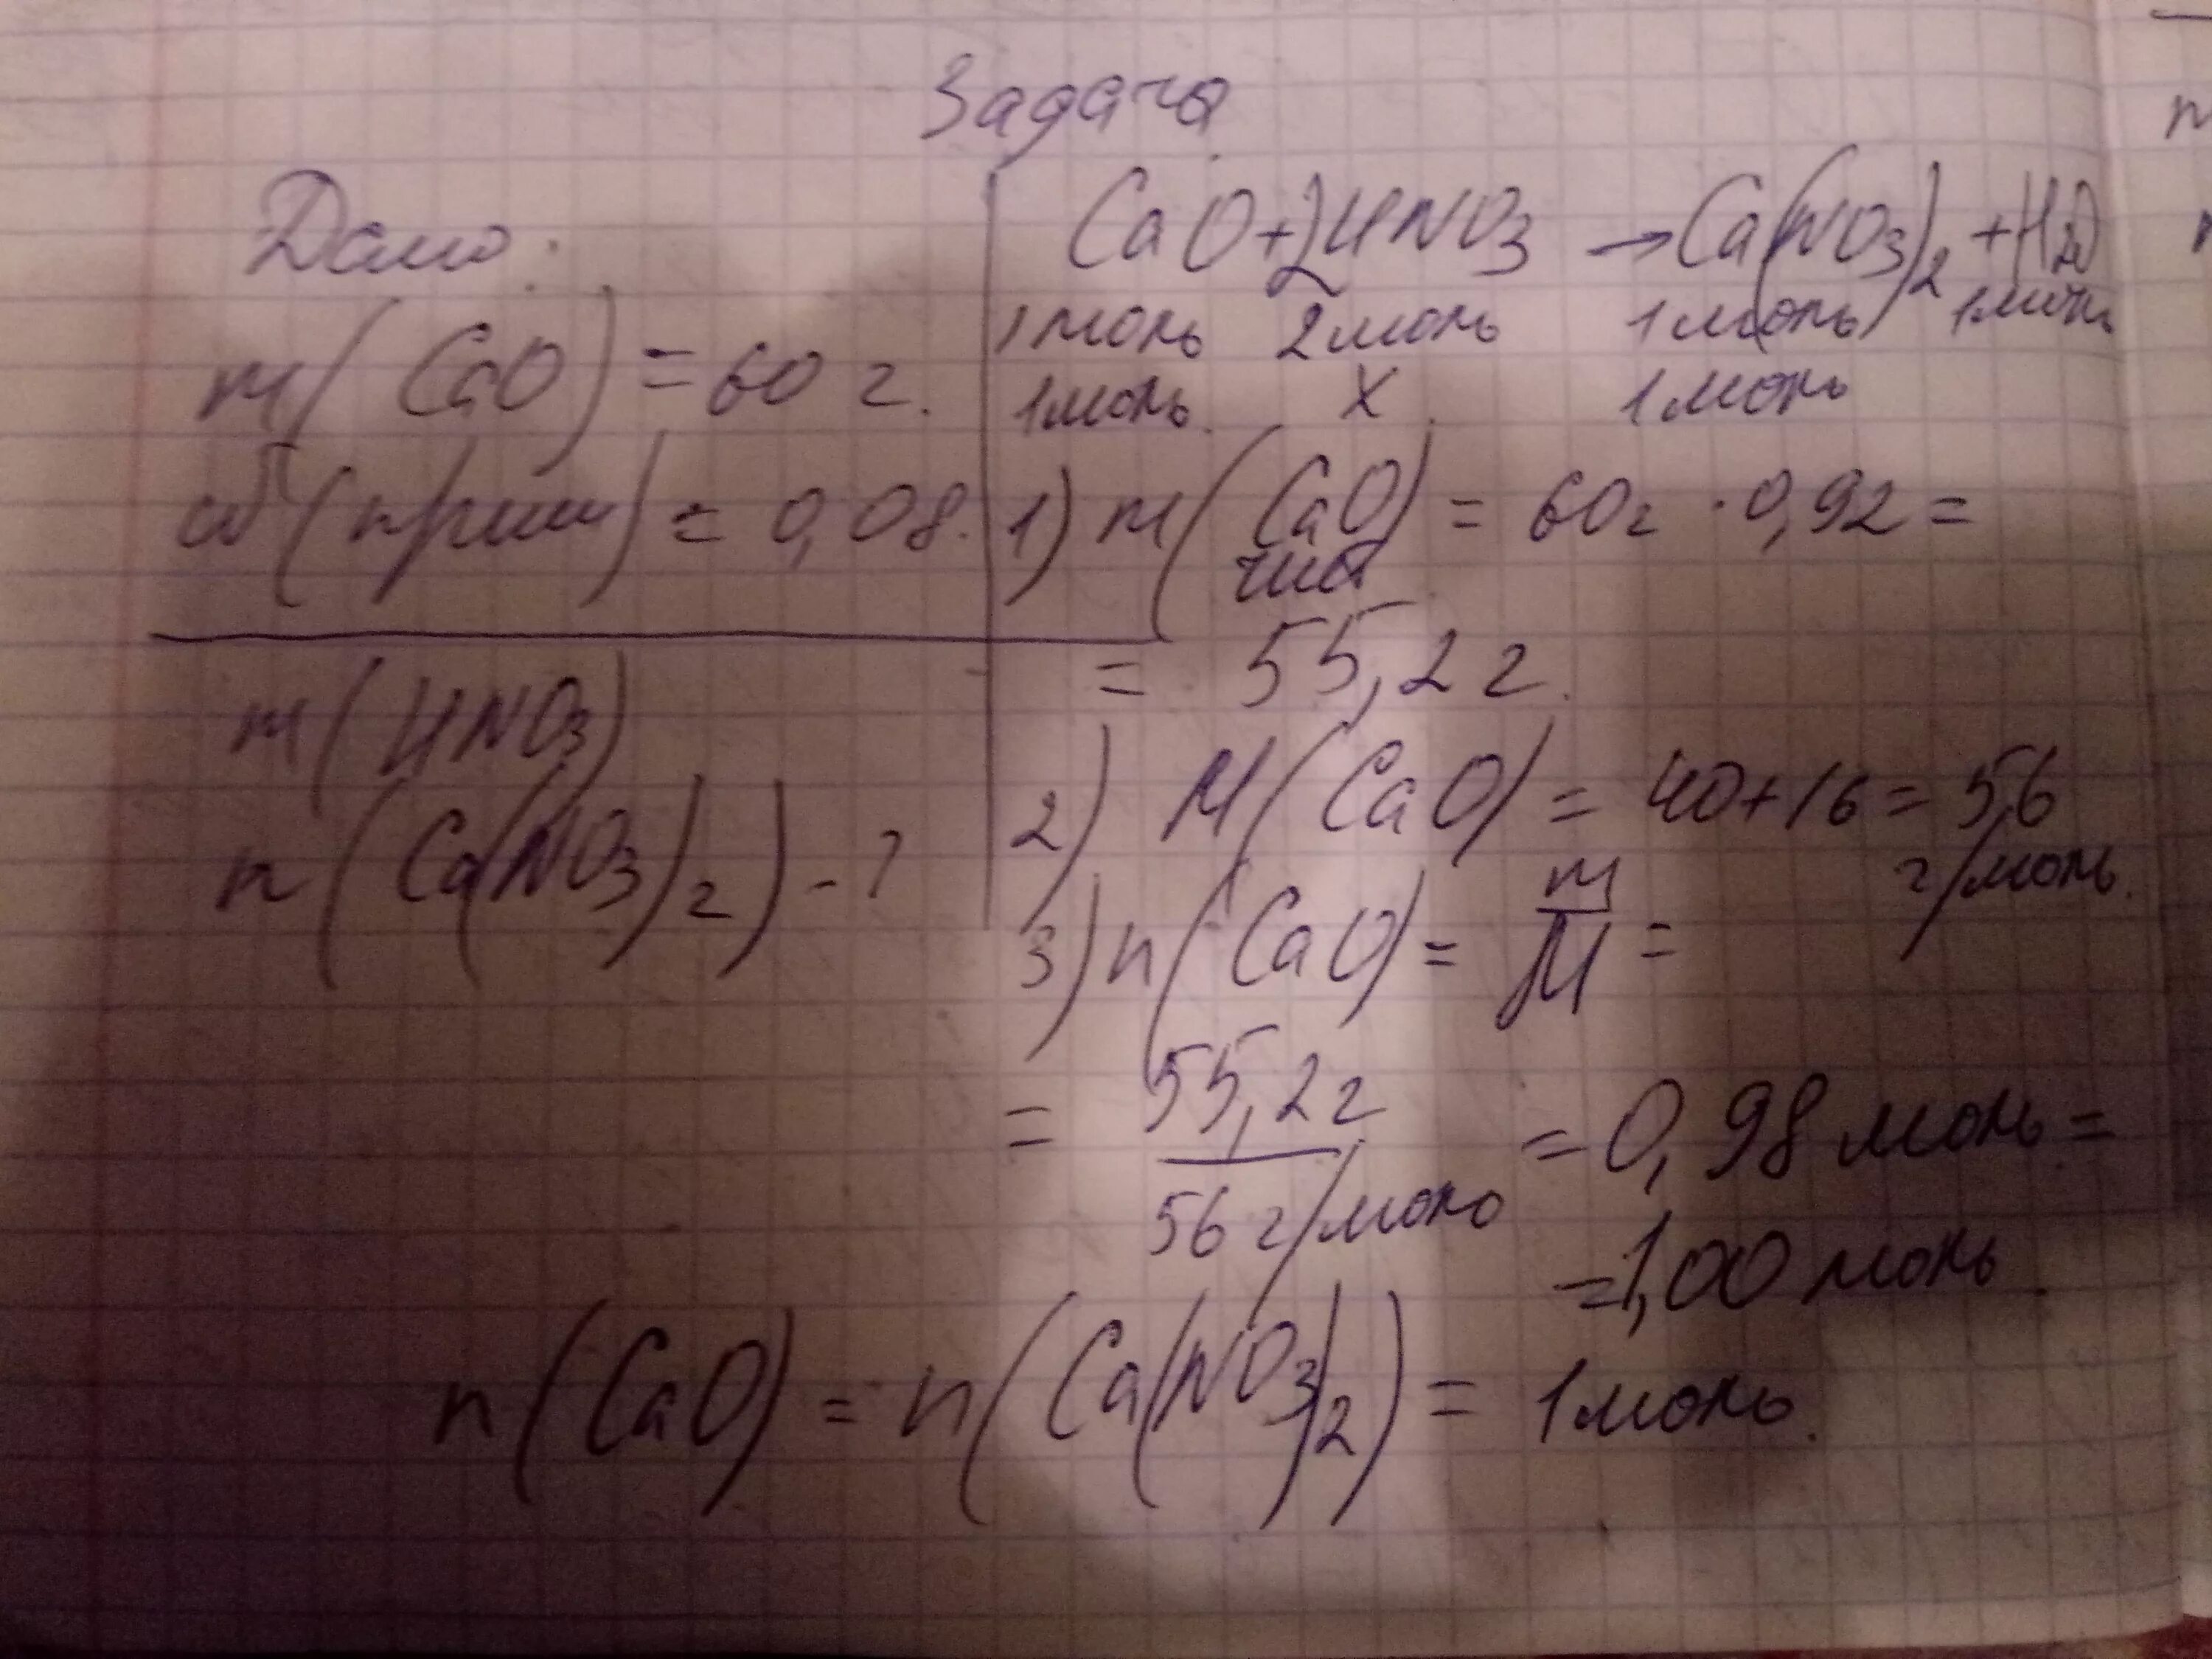 Задача
Дано:
m(CaO) = 60 г.
ω(прим) = 0,08.
m(HNO3)
n(Ca(NO3)2) - ?
CaO + 2HNO3 → Ca(NO3)2 + H2O
1 моль 2 моль 1 моль 1 моль
1 моль. x 1 моль
1) m(CaO) = 60 г · 0,92 =
чист
= 55,2 г.
2) M(CaO) = 40 + 16 = 56
г/моль.
3) n(CaO) = m/M =
= 55,2 г / 56 г/моль = 0,98 моль =
= 1,00 моль
n(CaO) = n(Ca(NO3)2) = 1 моль.